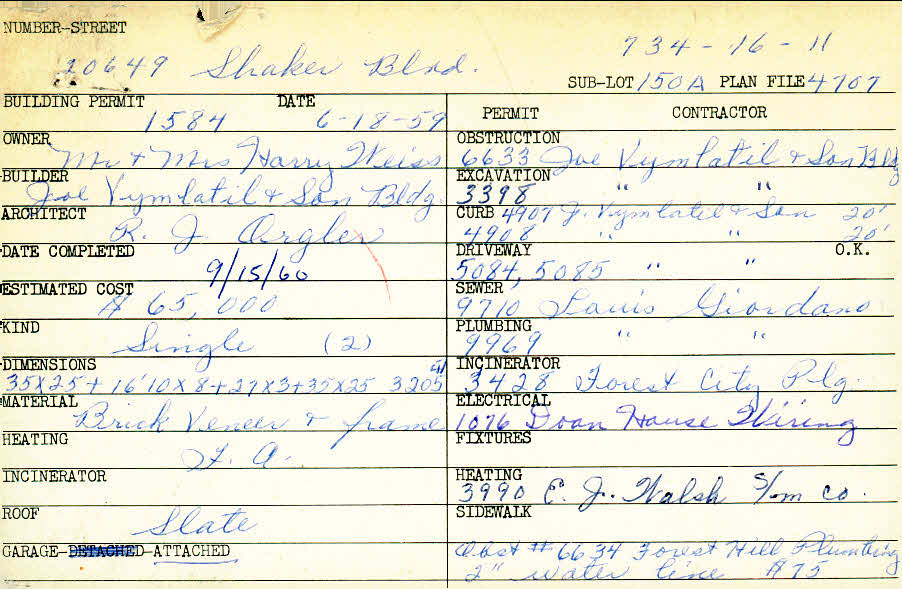 NUMBER-STREET
734-16-11
20649 Shaker Blvd.
SUB-LOT 150A PLAN FILE 4707
BUILDING PERMIT DATE
1584 6-18-59
OWNER
Mr + Mrs Harry Weiss
BUILDER
Joe Vymlatil & Son Bldg.
ARCHITECT
R. J. Orgler
DATE COMPLETED
9/15/60
ESTIMATED COST
$65,000
KIND
Single (2)
DIMENSIONS
35x25 + 16'10 x 8 + 27x3 + 35x25 3205
MATERIAL
Brick Veneer & frame
HEATING
F. A.
INCINERATOR
ROOF
Slate
GARAGE-DETACHED-ATTACHED
PERMIT CONTRACTOR
OBSTRUCTION
6633 Joe Vymlatil & Son Bldg
EXCAVATION
3398 " "
CURB 4907 J. Vymlatil & Son 20'
4908 " " 20'
DRIVEWAY O.K.
5084, 5085 " "
SEWER
9710 Louis Giordano
PLUMBING
9969 " "
INCINERATOR
3428 Forest City Plg.
ELECTRICAL
1076 Doan House Wiring
FIXTURES
HEATING
3990 E. J. Walsh S/m co.
SIDEWALK
Obst # 6634 Forest Hill Plumbing
2" water line $75